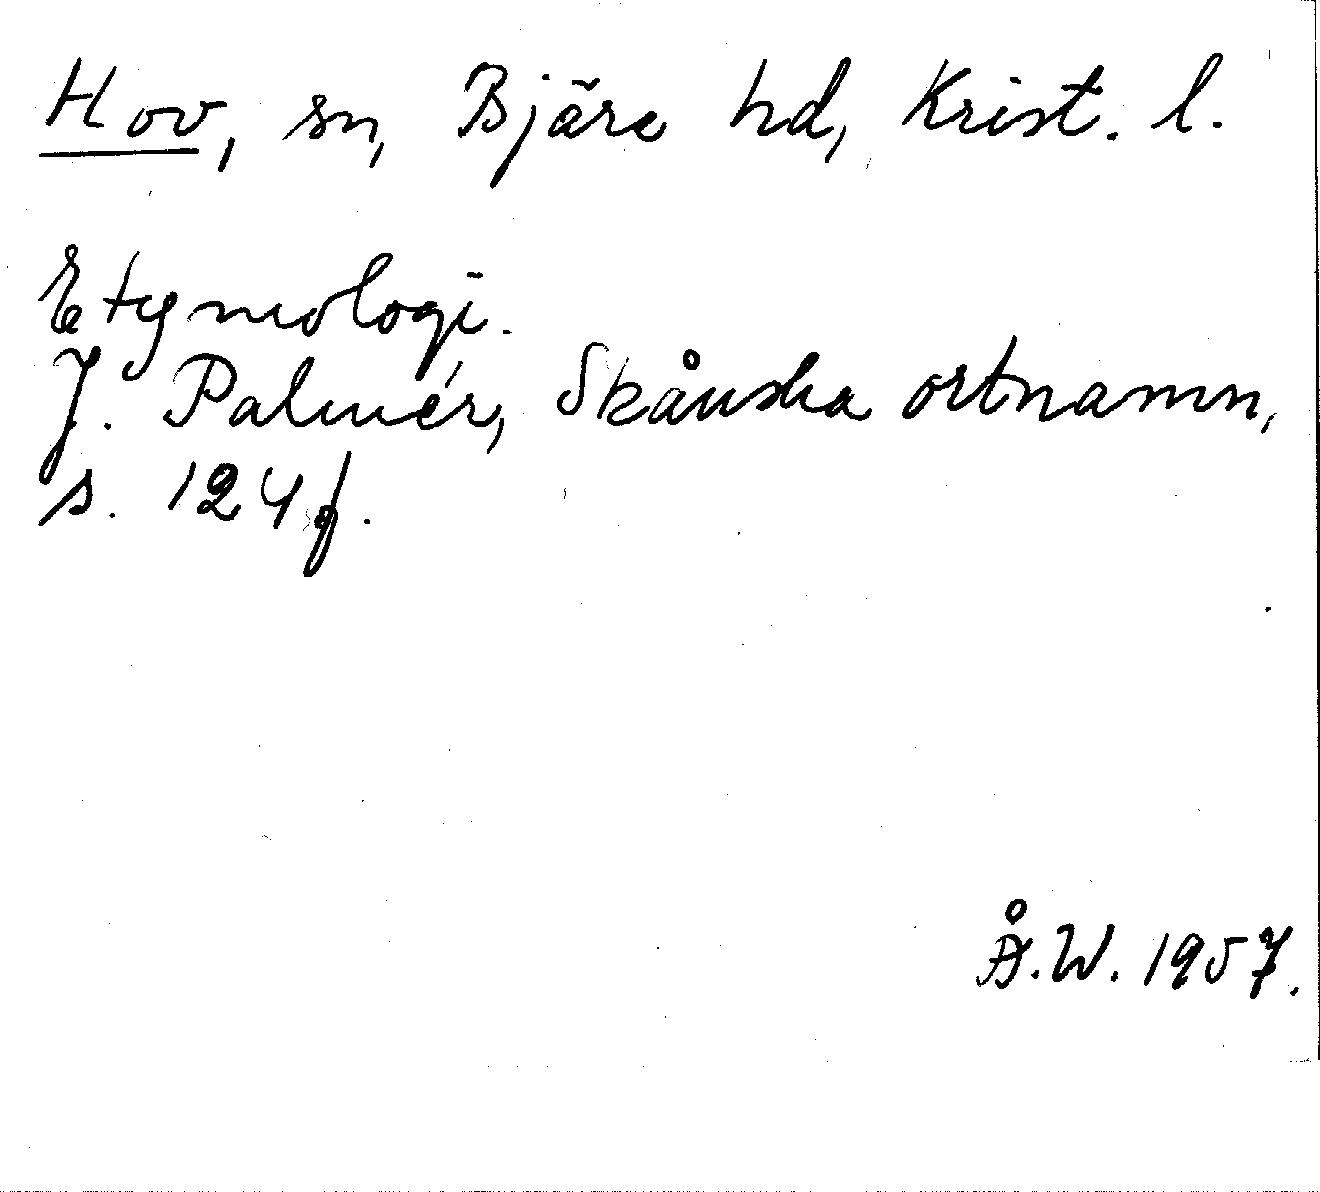 Hov, sn, Bjäre hd, Krist. l.
Etymologi.
J. Palmér, Skånska ortnamn,
s. 124 f.
Å.W. 1957.